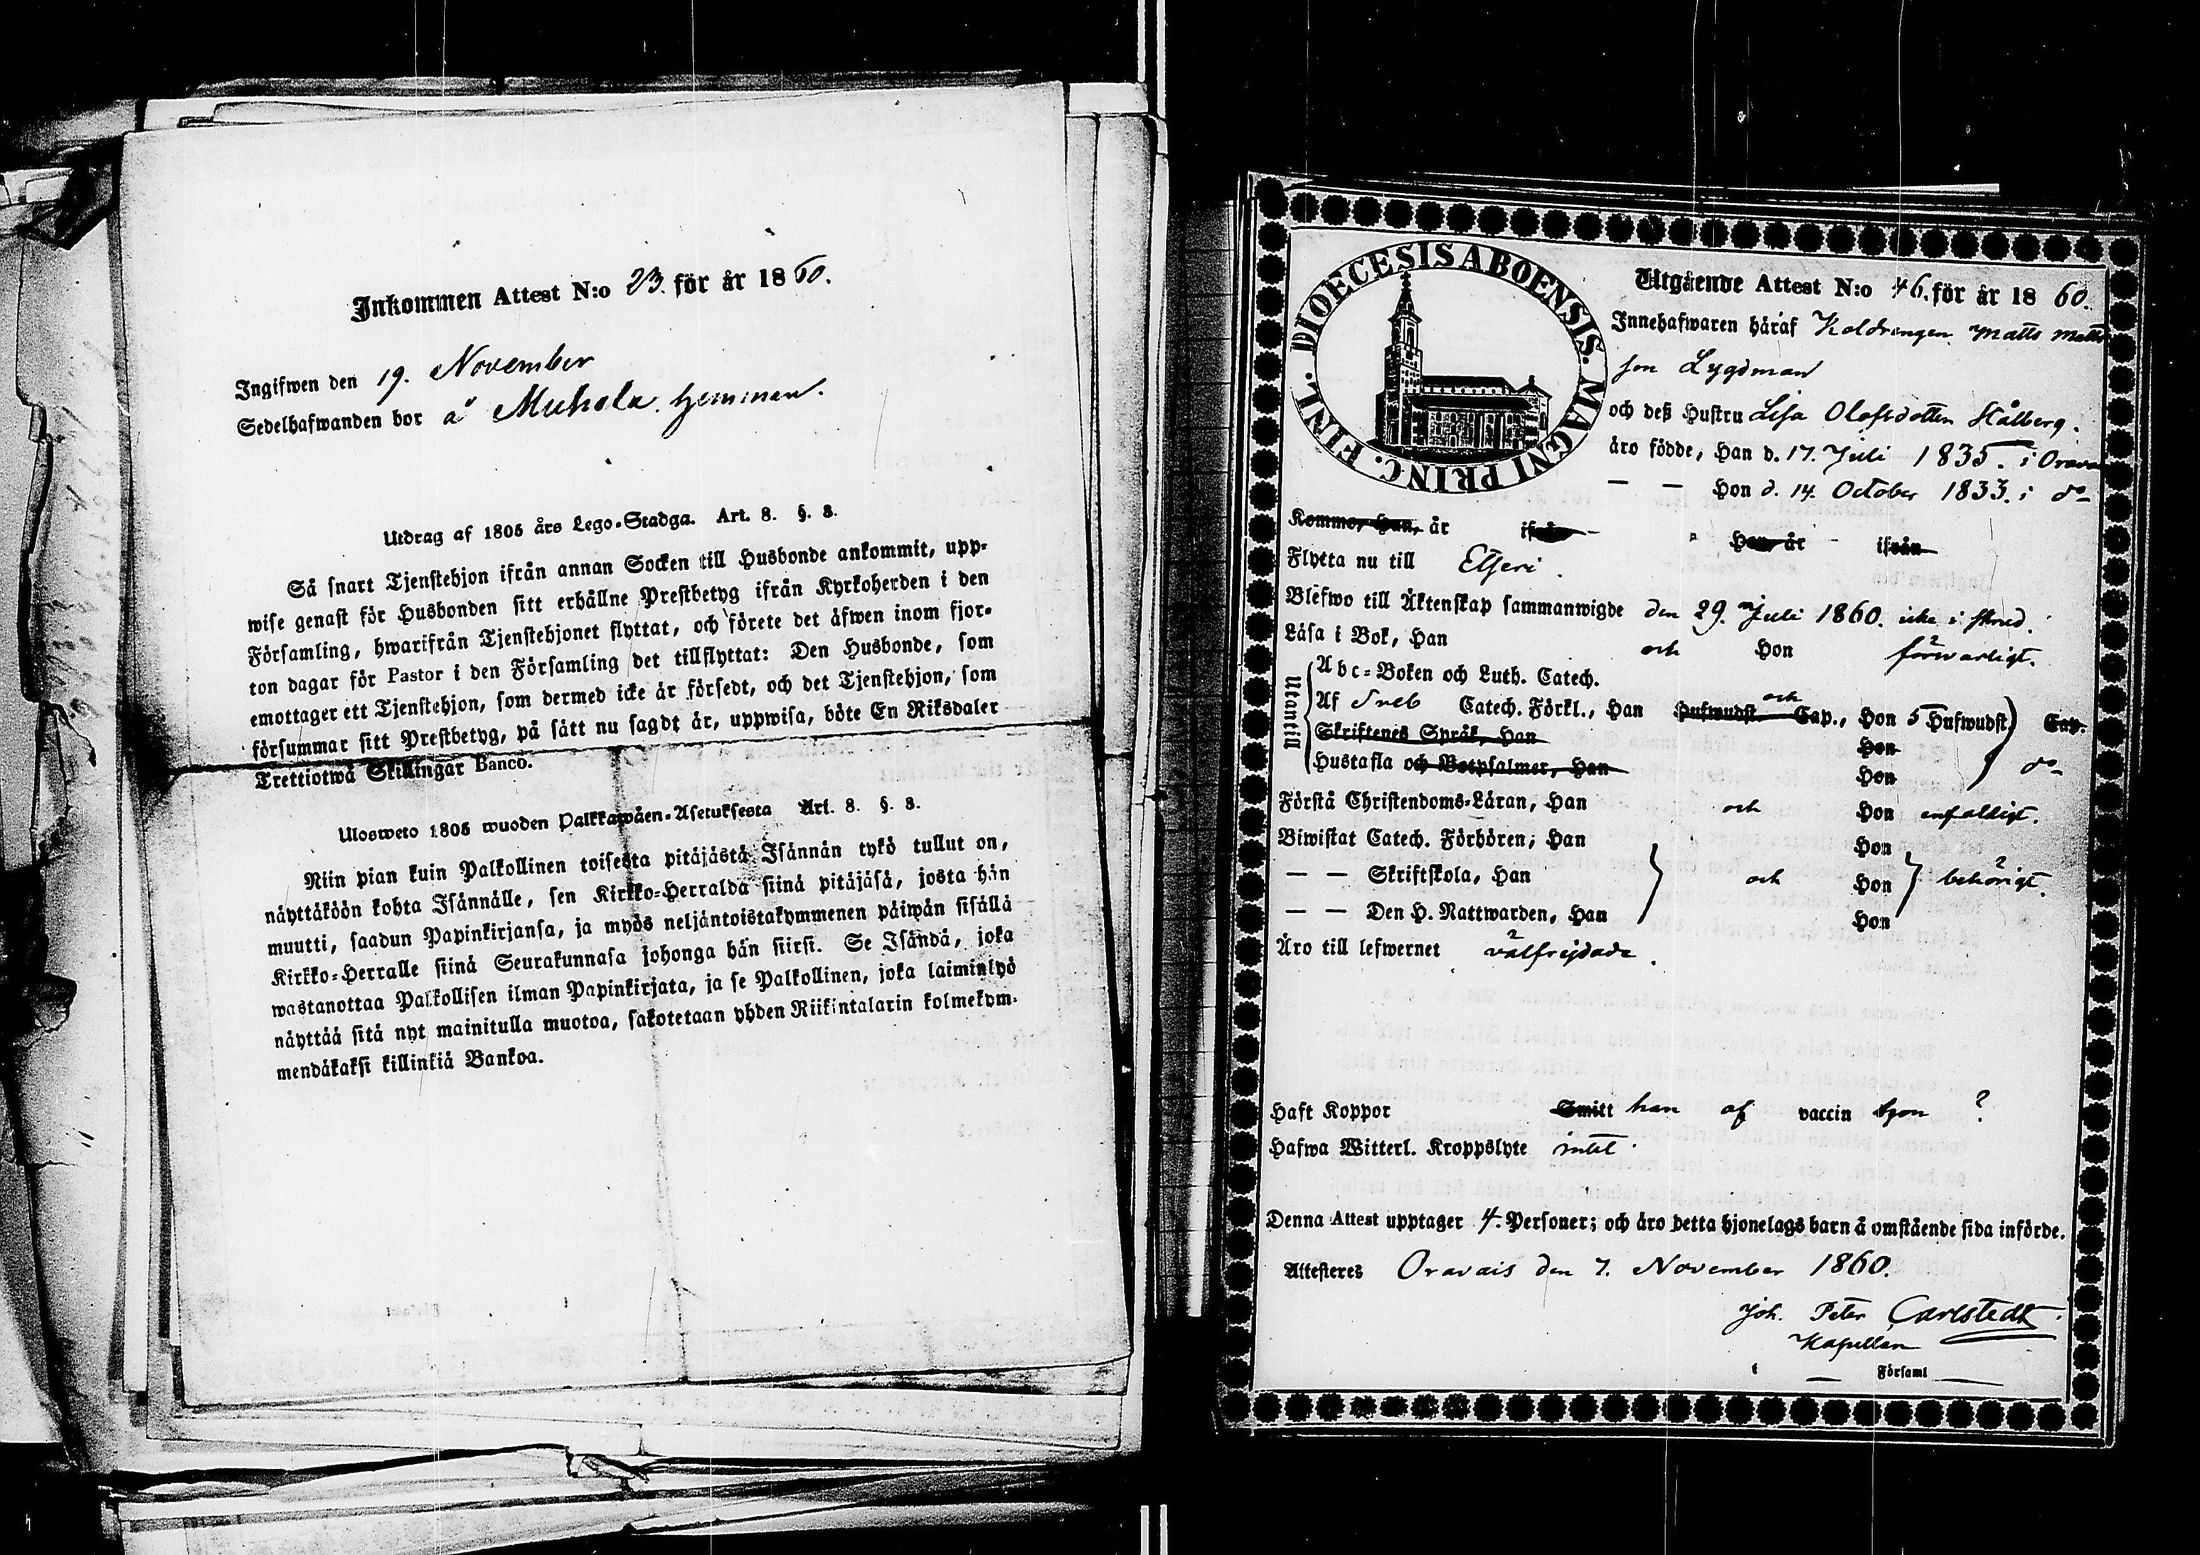 Inkommen Attest N:o 23. för år 1860.
Ingifwen den 19. November
Sedelhafwanden bor å Muhola hemman.
Utdrag af 1805 års Lego-Stadga. Art. 8. §. 8.
Så snart Tjenstehjon ifrån annan Socken till Husbonde ankommit, upp-
wise genast för Husbonden sitt erhållne Prestbetyg ifrån Kyrkoherden i den
Församling, hwarifrån Tjenstehjonet flyttat, och förete det äfwen inom fjor-
ton dagar för Pastor i den Församling det tillflyttat: Den Husbonde, som
emottager ett Tjenstehjon, som dermed icke är försedt, och det Tjenstehjon, som
försummar sitt Prestbetyg, på sätt nu sagdt är, uppwisa, böte En Riksdaler
Trettiotwå Skillingar Banco.
Ulosweto 1805 wuoden Palkkawäen-Asetuksesta Art. 8. §. 8.
Niin pian kuin Palkollinen toisesta pitäjästä Isännän tykö tullut on,
näyttäköön kohta Isännälle, sen Kirkko-Herralda siinä pitäjäsä, josta hän
muutti, saadun Papinkirjansa, ja myös neljäntoistakymmenen päiwän sisällä
Kirkko-Herralle siinä Seurakunnasa johonga hän siirsi. Se Isändä, joka
wastanottaa Palkollisen ilman Papinkirjata, ja se Palkollinen, joka laiminlyö
näyttää sitä nyt mainitulla muotoa, sakotetaan yhden Riikintalarin kolmekym-
mendäkaksi killinkiä Bankoa.
DIOECESIS ABOENSIS. MAGNI PRINC. FINL.
Utgående Attest N:o 46. för år 1860.
Innehafwaren häraf Koldrengen Matts Matts
son Lygdman
och deß Hustru Lisa Olofsdotter Stålberg.
äro födde, Han d. 17. Juli 1835. i Oravais
— — Hon d. 14. October 1833. i do
Kommo, Han, år ifrån - " Hon, år - ifrån
Flytta nu till Etseri.
Blefwo till Äktenskap sammanwigde den 29. Juli 1860. icke i skrud.
Läsa i Bok, Han och Hon försvarligt.
Utantill
Abc-Boken och Luth. Catech.
Af Sveb Catech. Förkl., Han Hufwudst. och Cap., Hon 5 Hufwudst. Cap.
Skriftenes Språk, Han Hon
Hustafla och Botpsalmer, Han Hon do
Förstå Christendoms-Läran, Han och Hon enfaldigt.
Biwistat Catech. Förhören, Han Hon
— — Skriftskola, Han och Hon behörigt.
— — Den H. Nattwarden, Han Hon
Äro till lefwernet välfrejdade.
Haft Koppor Smitt han af vaccin hon ?
Hafwa Witterl. Kroppslyte intet.
Denna Attest upptager 4. Personer; och äro detta hjonelags barn å omstående sida införde.
Attesteres Oravais den 7. November 1860.
Joh. Peter Carlstedt.
Kapellan
i — Församl —